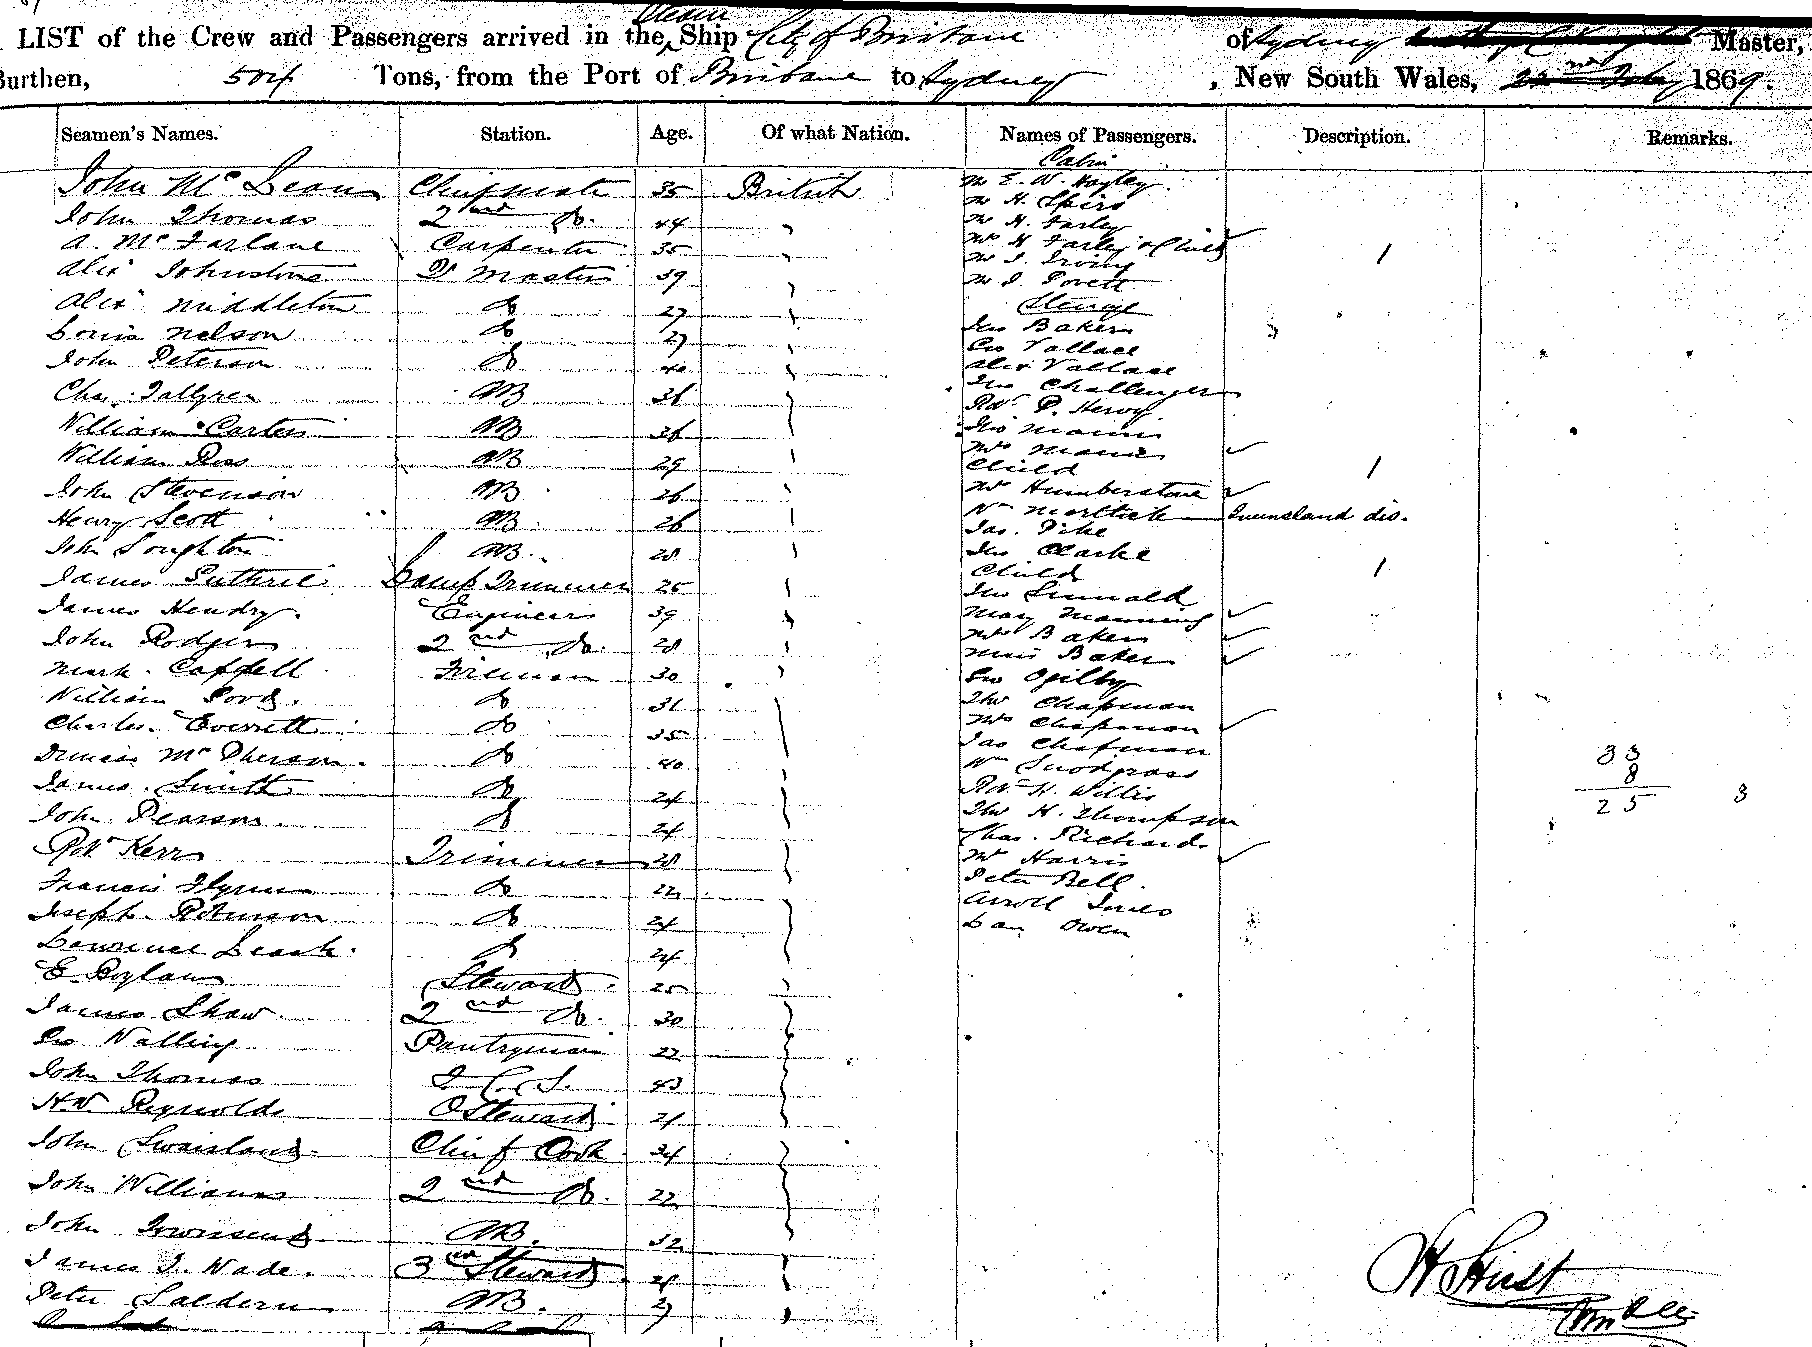 LIST of the Crew and Passengers arrived in the Steam Ship City of Brisbane of Sydney Master,
Burthen, 504 Tons, from the Port of Brisbane to Sydney, New South Wales, 22nd Feby 1869.
Seamen's Names. Station. Age. Of what Nation. Names of Passengers. Description. Remarks.
Cabin
John McLean Chief mate 35 British
John Thomas 2nd Do. 44
A. McFarlane Carpenter 35
Alex Johnstone Qr Master 39
Alex Middleton Do 27
Louis Nelson Do 27
John Peterson Do 40
Chas. Tallgren AB 36
William Carter AB 36
William Ross AB 29
John Stevenson AB 26
Henry Scott AB 26
John Loughton AB. 28
James Guthrie Lamp Trimmer 25
James Hendry. Engineer 39
John Rodger 2nd Do. 28
Mark. Cappell Fireman 30
William Do 31
Charles. Everett Do 35
McPherson. Do 40
James. Smith Do 24
John Pearson. Do 24
Robt Kerr Trimmer 28
Francis Flynn Do 22
Joseph. Robinson Do 24
Lawrence Leask. Do 24
E Boylan Steward. 25
James Shaw 2nd Do. 30
Geo Walling Pantryman 22
John Thomas 43
H.W. Reynolds Steward 21
John Swaisland Chief Cook 34
John Williams 2nd Do. 22
John Townsend AB. 32
James J. Wade. 3rd Steward
Peter AB. 27
Mr E. W. Hogley.
Mr H. Spiro
Mr H. Farley
Mrs H Farley & Child 1
Mr J. Irving
Mr J.
Steerage
Jno Baker
Geo Vallace
Alex Vallace
Jno Challenger
Robt P. Hervy.
Jno Mann
Mrs Mann
Child 1
Mrs Humberstone
Wm Queensland dis.
Jas. Pike
Jno Clarke
Child 1
Jno
Mary Manning
Mrs Baker
Miss Baker
Geo Ogilby
Thos Chapman
Mrs Chapman
Jas Chapman
Wm Snodgrass
Robt H. Willis
Thos H. Thompson
Chas. Richards
Mrs Harris
Peter Bell.
Jones
Dan Owen
33
8
25 3